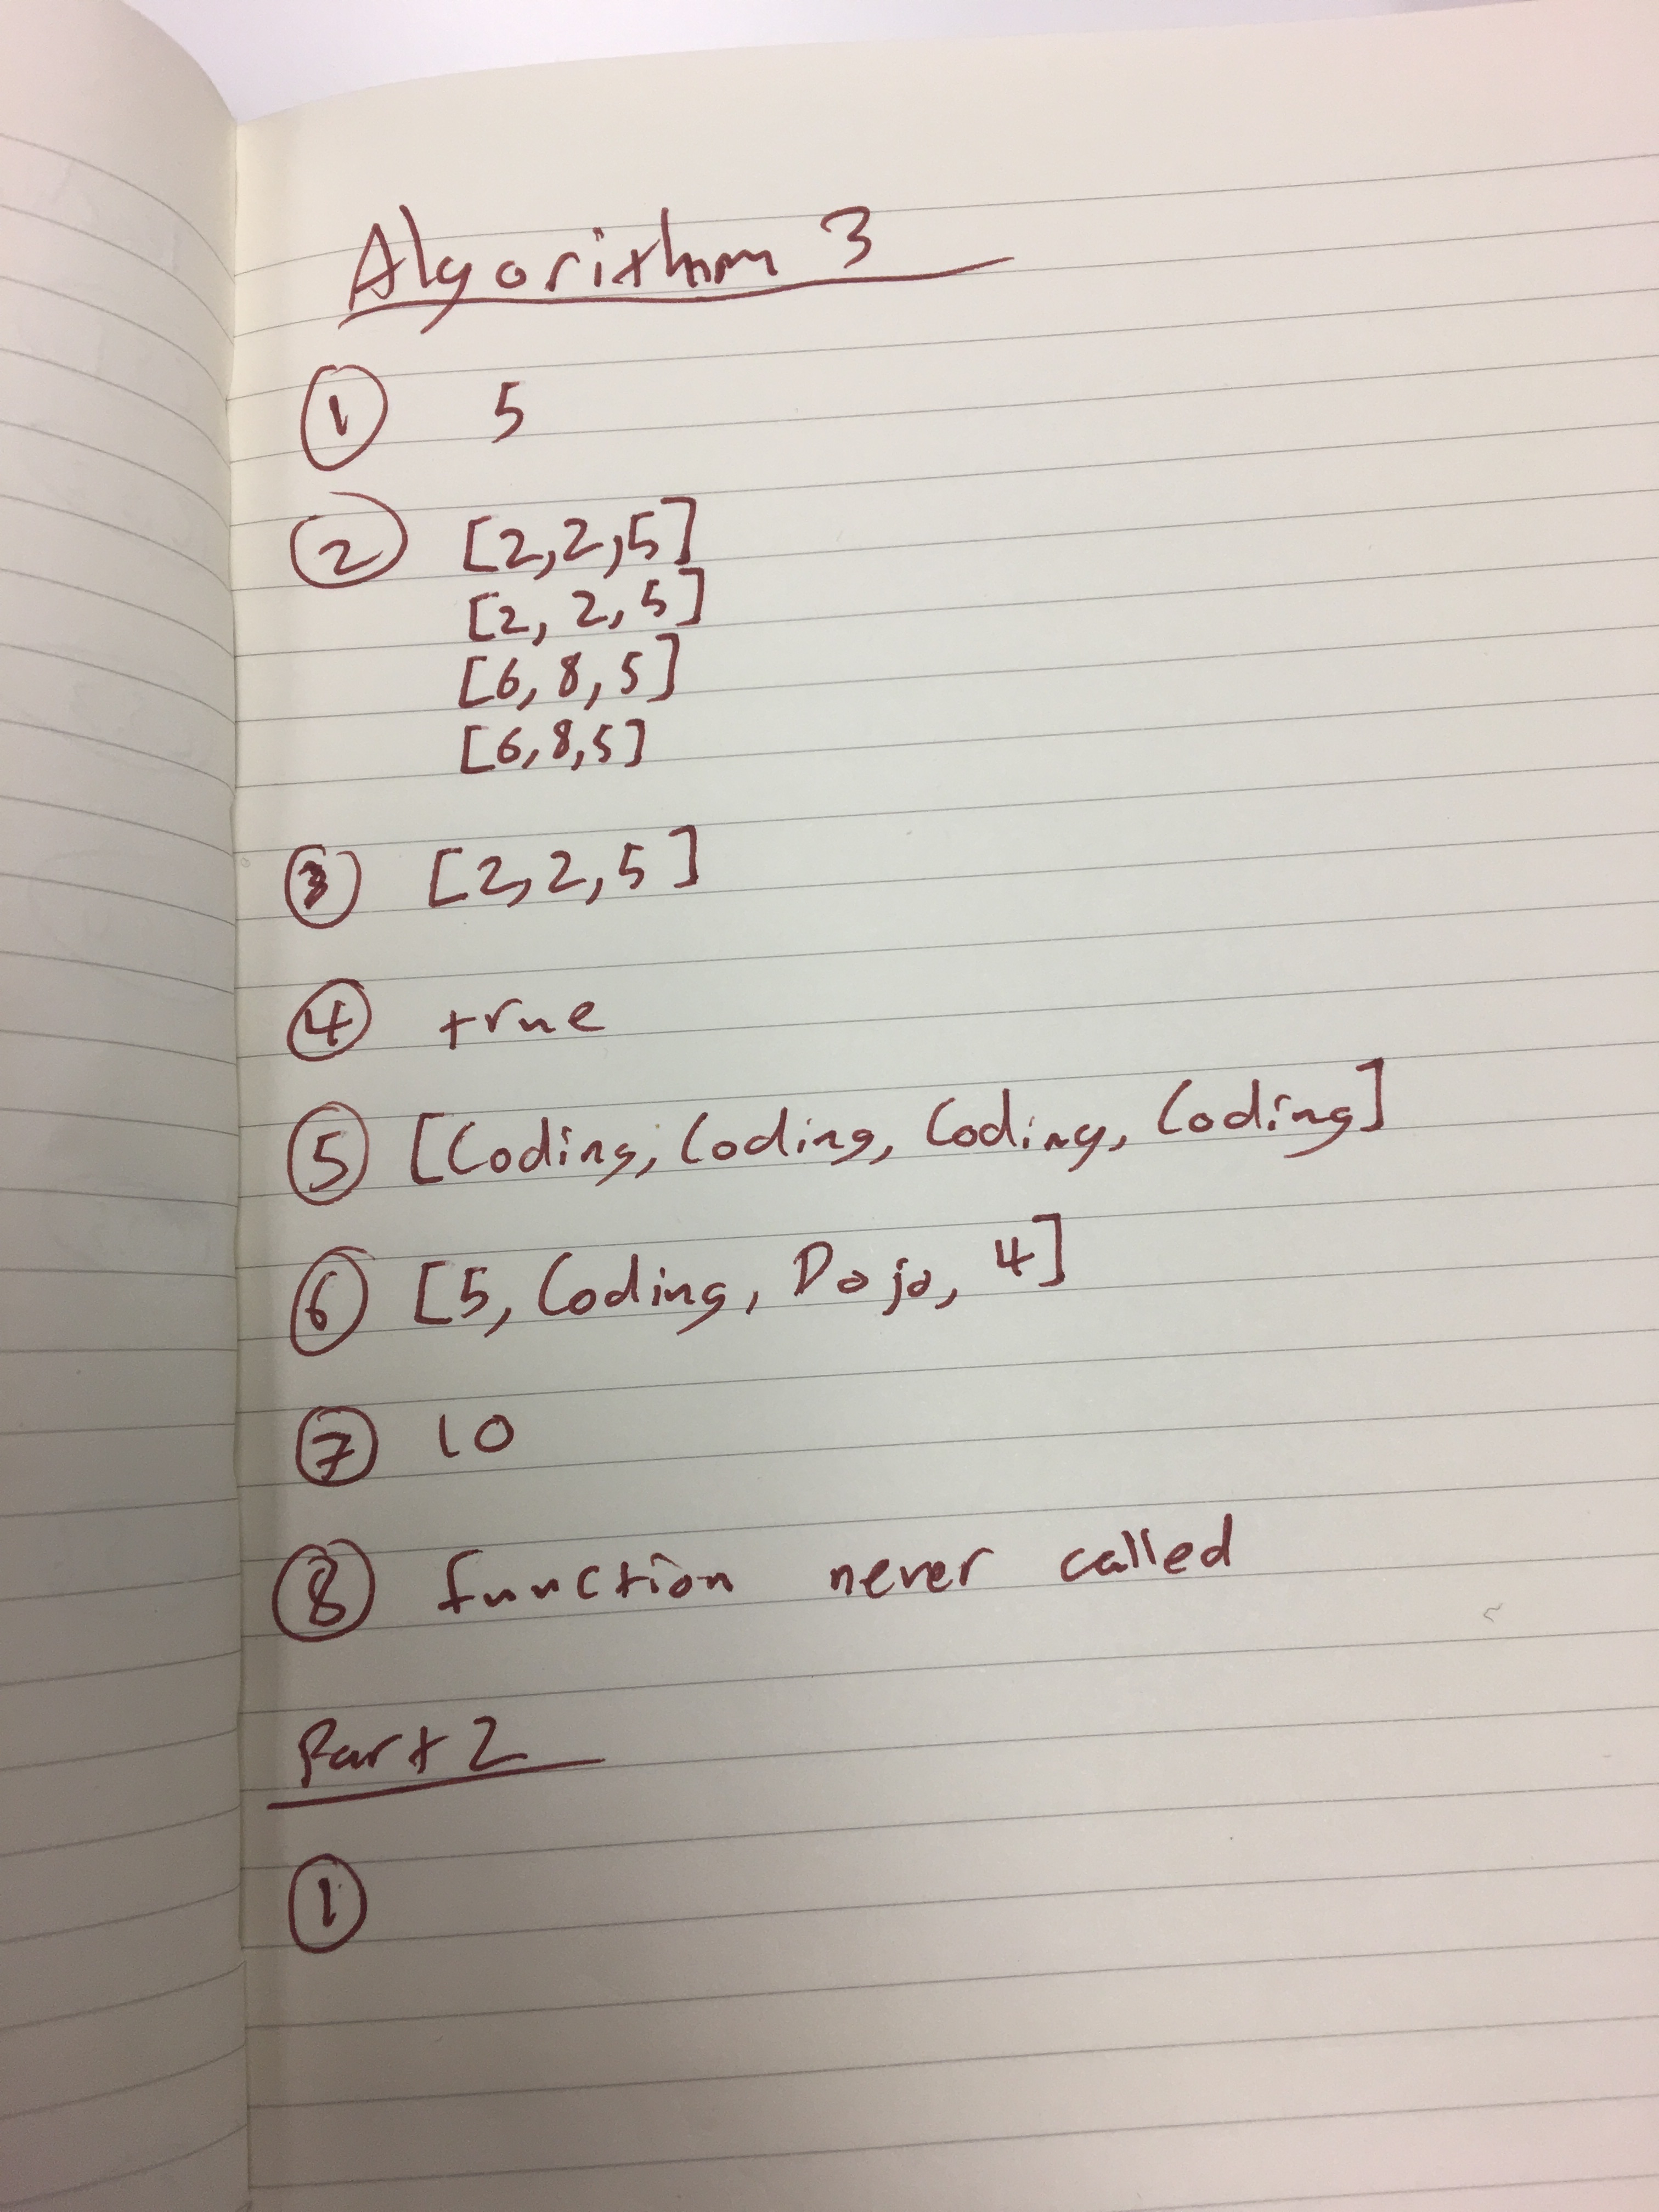 Algorithm 3
① 5
② [2,2,5]
[2, 2, 5]
[6, 8, 5]
[6,8,5]
③ [2,2,5]
④ true
⑤ [Coding, Coding, Coding, Coding]
⑥ [5, Coding, Dojo, 4]
⑦ 10
⑧ function never called
Part 2
①